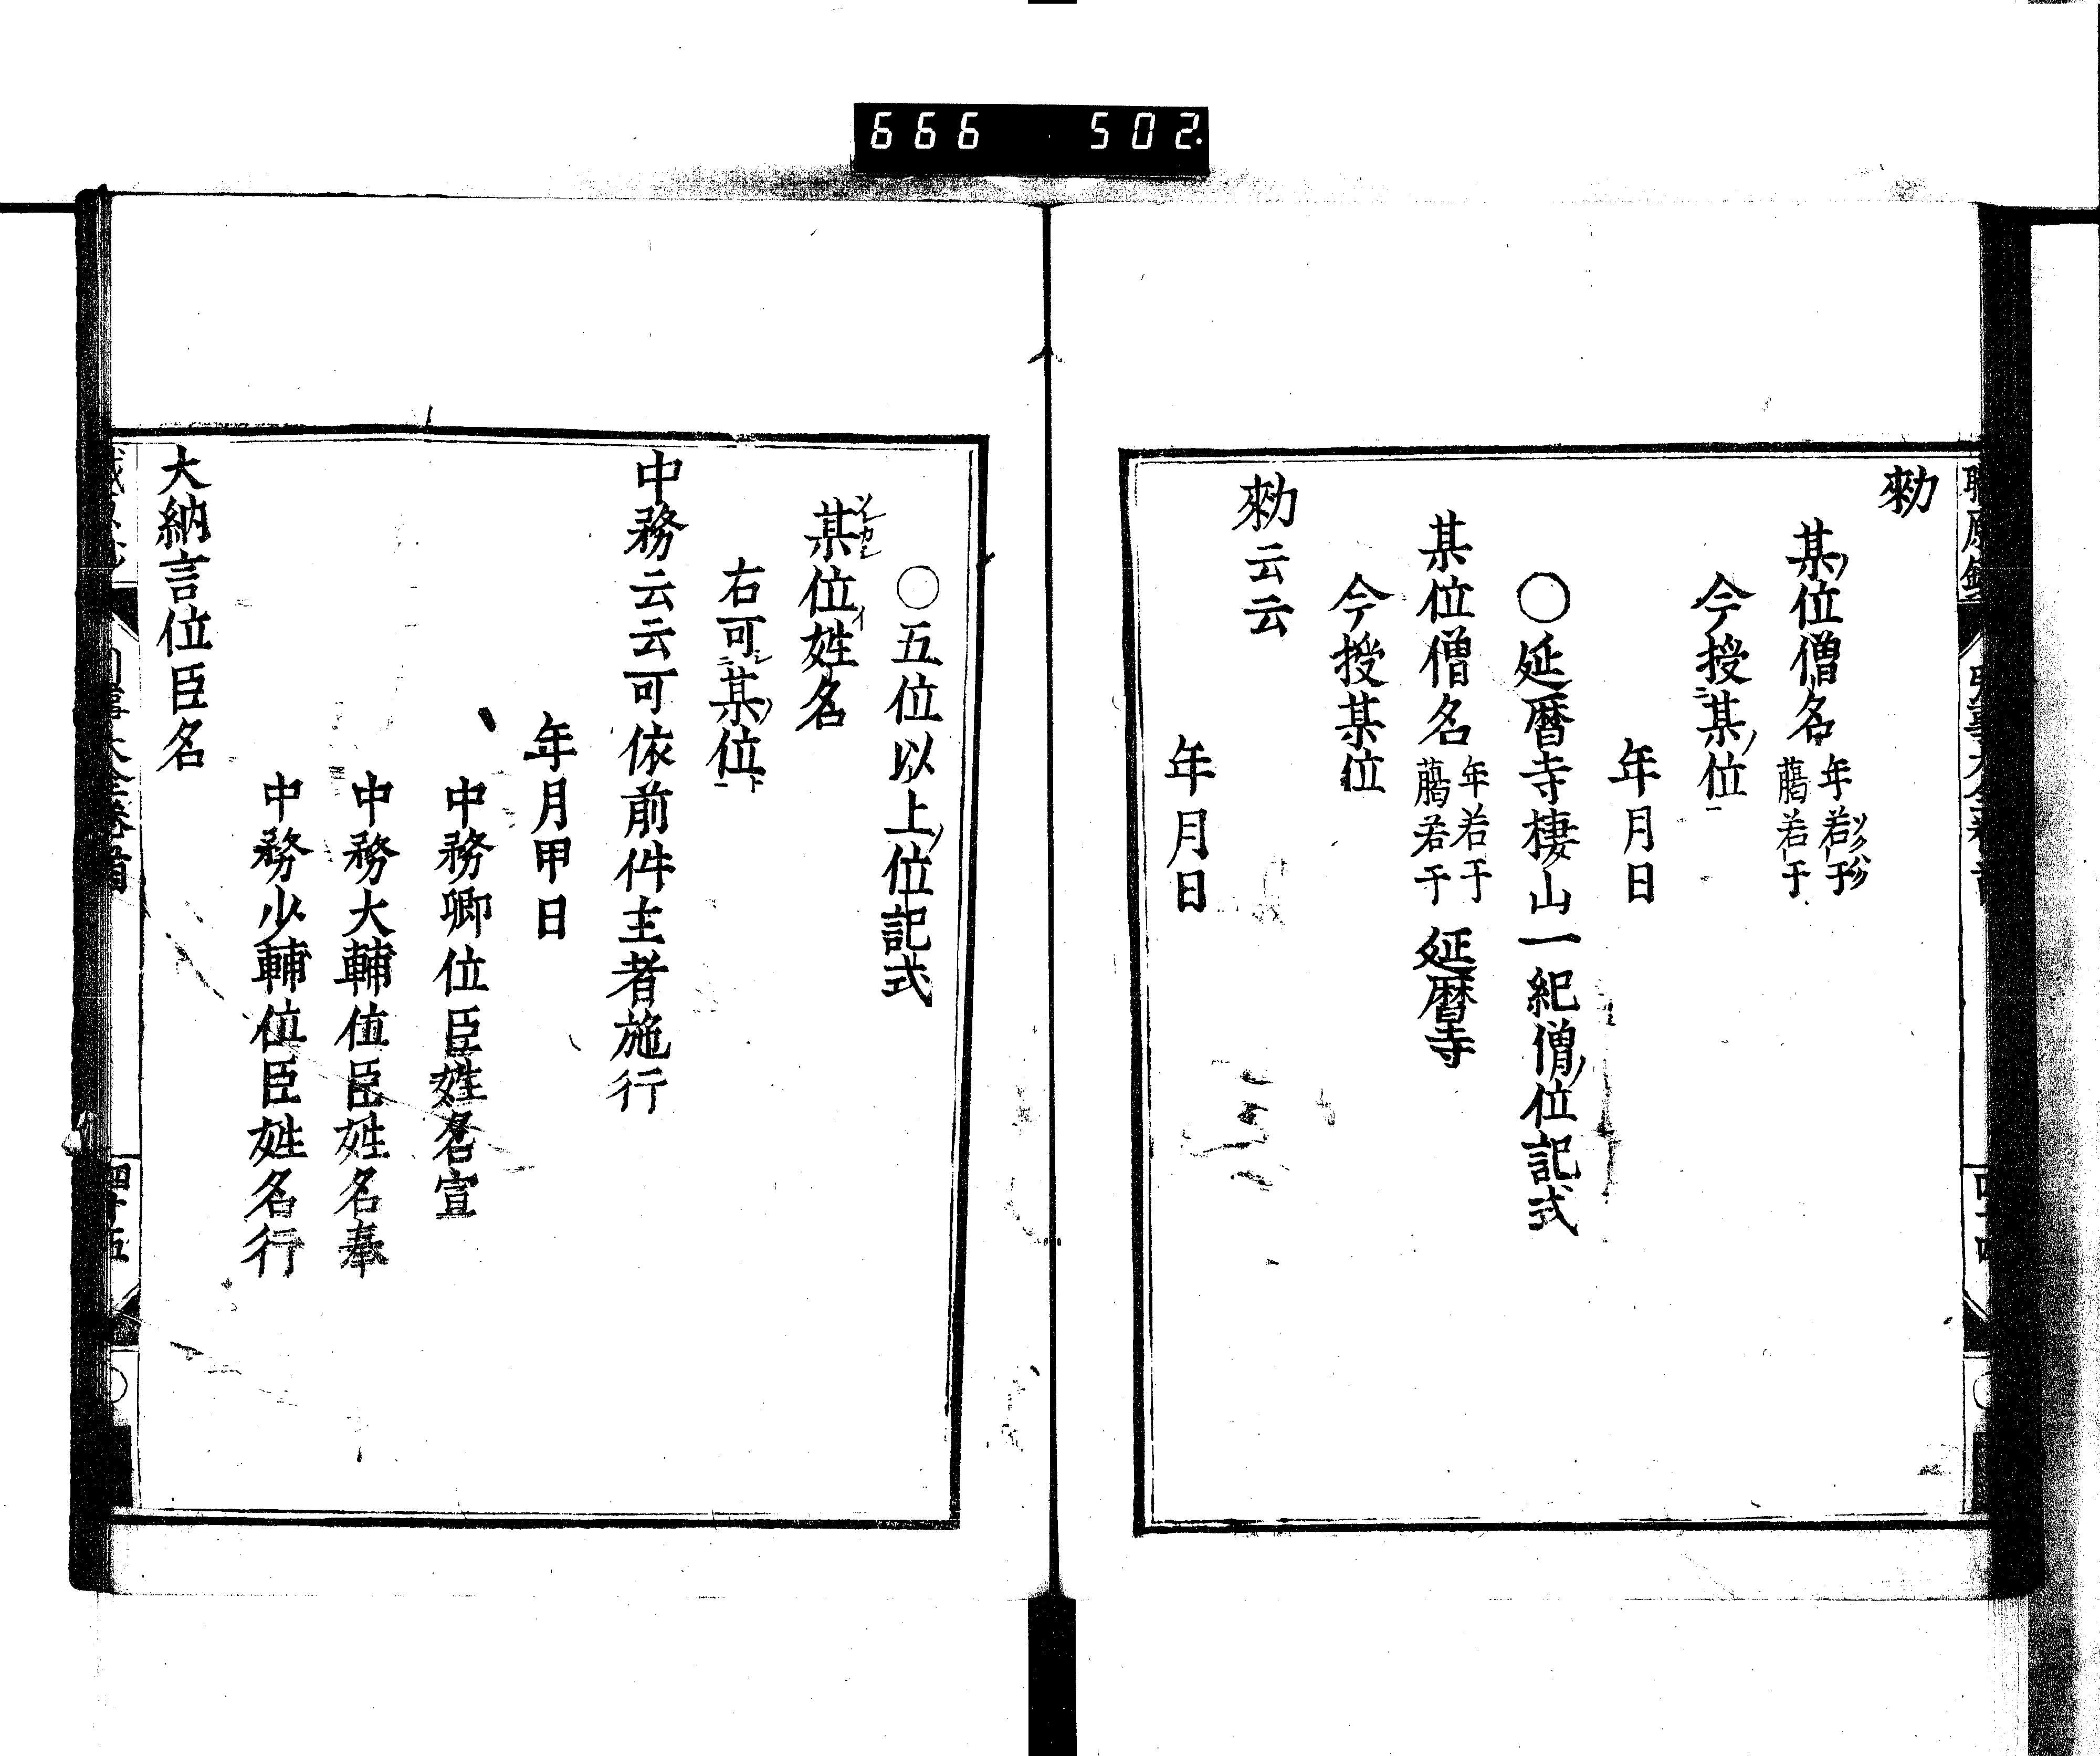 666 502
勅
某位僧名 年若干 﨟若干
今授某位
年月日
〇延暦寺棲山一紀僧位記式
某位僧名 年若于 﨟若干 延暦寺
今授某位
勅云云
年月日
〇五位以上位記式
某位姓名
右可某位
中務云云可依前件主者施行
年月甲日
中務卿位臣姓名宣
中務大輔位臣姓名奉
中務少輔位臣姓名行
大納言位臣名